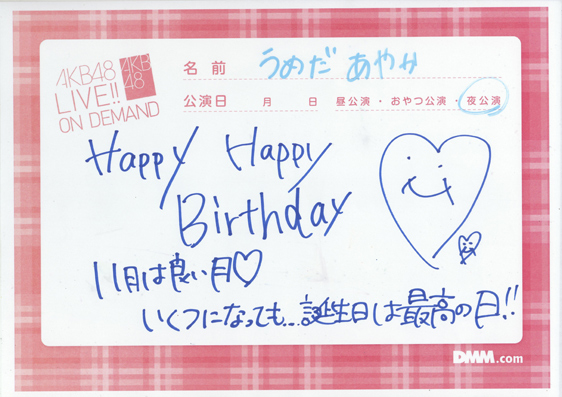 AKB48
LIVE!!
ON DEMAND
AKB
48
名前 うめだ あやか
公演日 月 日 昼公演・おやつ公演・夜公演
Happy Happy
Birthday
11月は良い月♡
いくつになっても…誕生日は最高の日!!
DMM.com